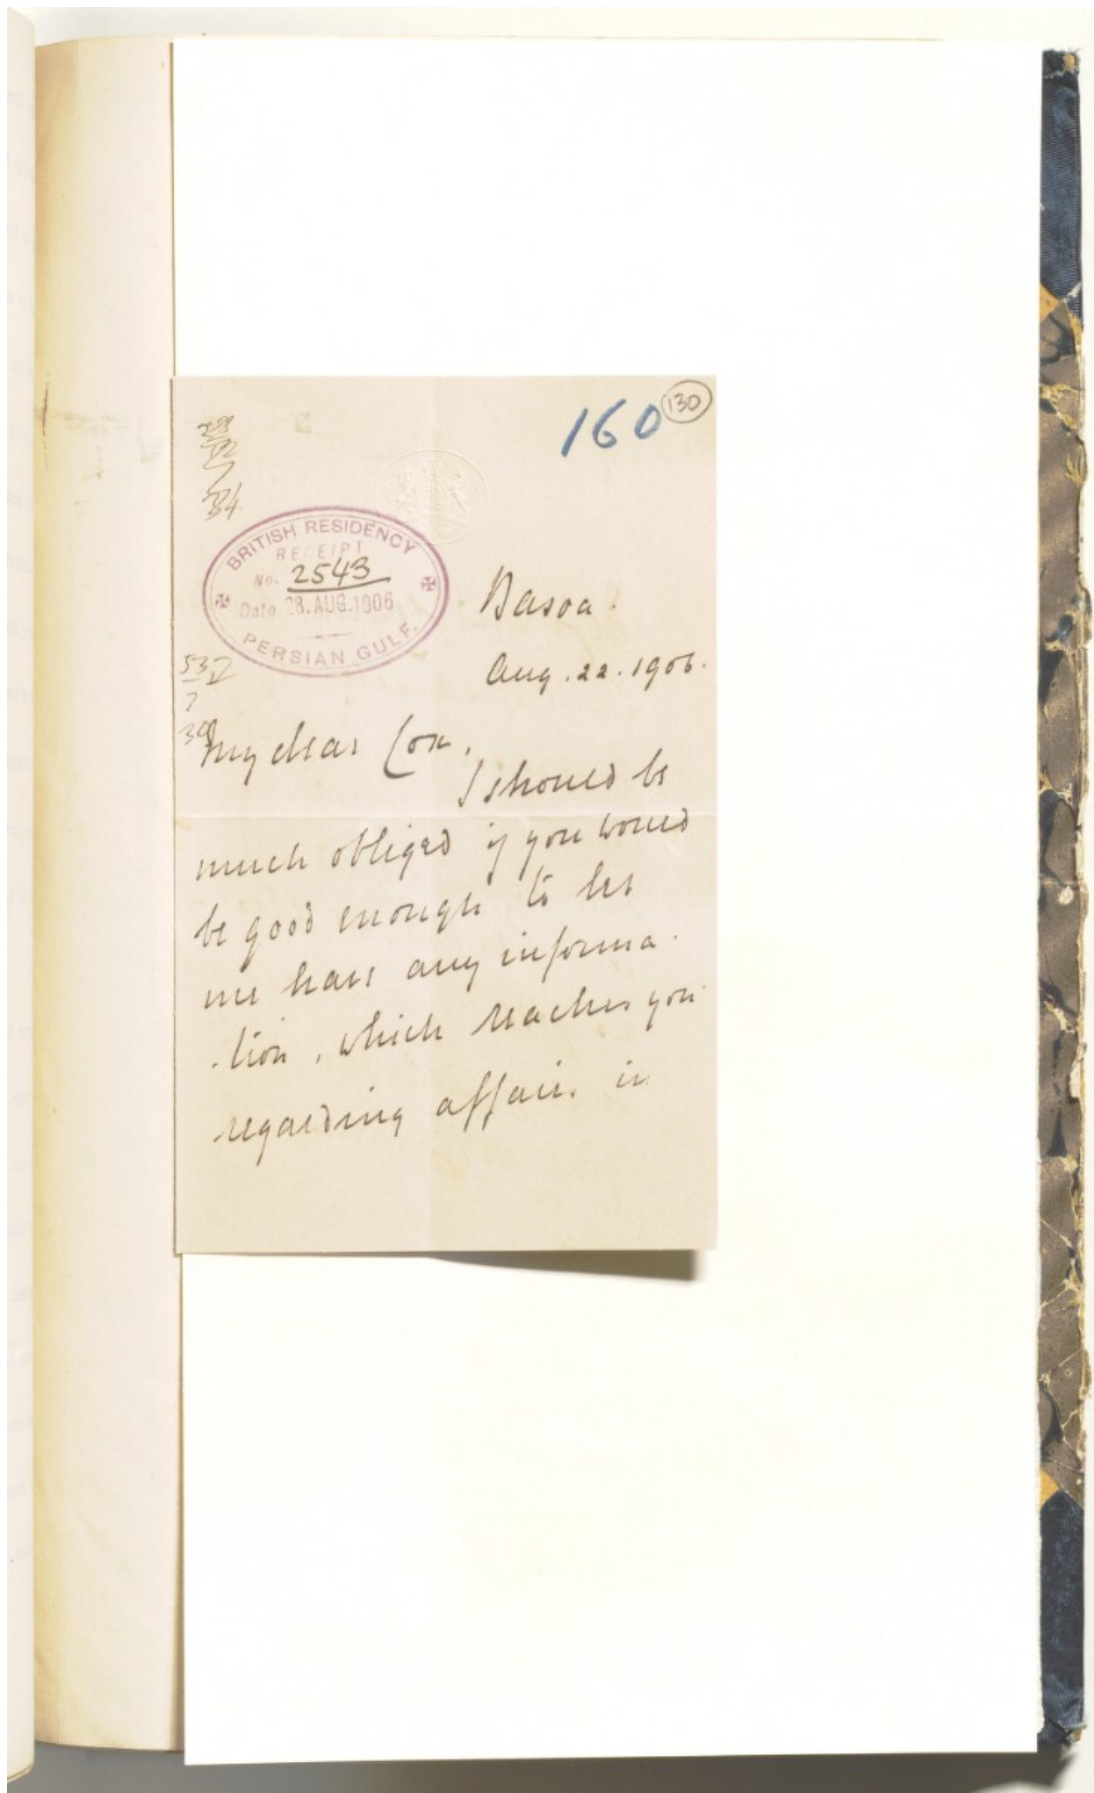 160
130
BRITISH RESIDENCY
RECEIPT
No. 2543
Date 28. AUG. 1906
PERSIAN GULF.
Basra.
Aug. 22. 1906.
53
7
My dear Cox,
I should be
much obliged if you would
be good enough to let
me have any informa-
-tion, which reaches you
regarding affairs in